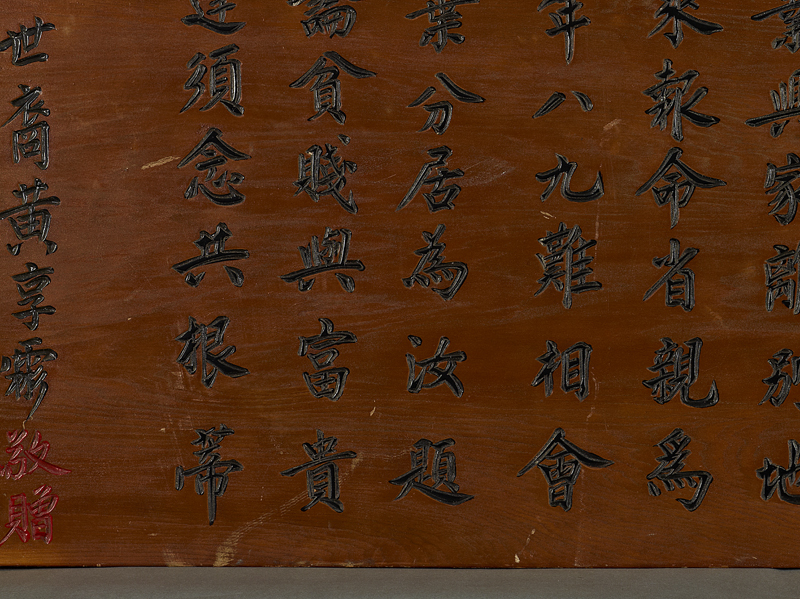 業興家離別地
來報命省親為
年八九難相會
業分居為汝題
論貧賤與富貴
逢須念共根蒂
世裔黃享霖敬贈